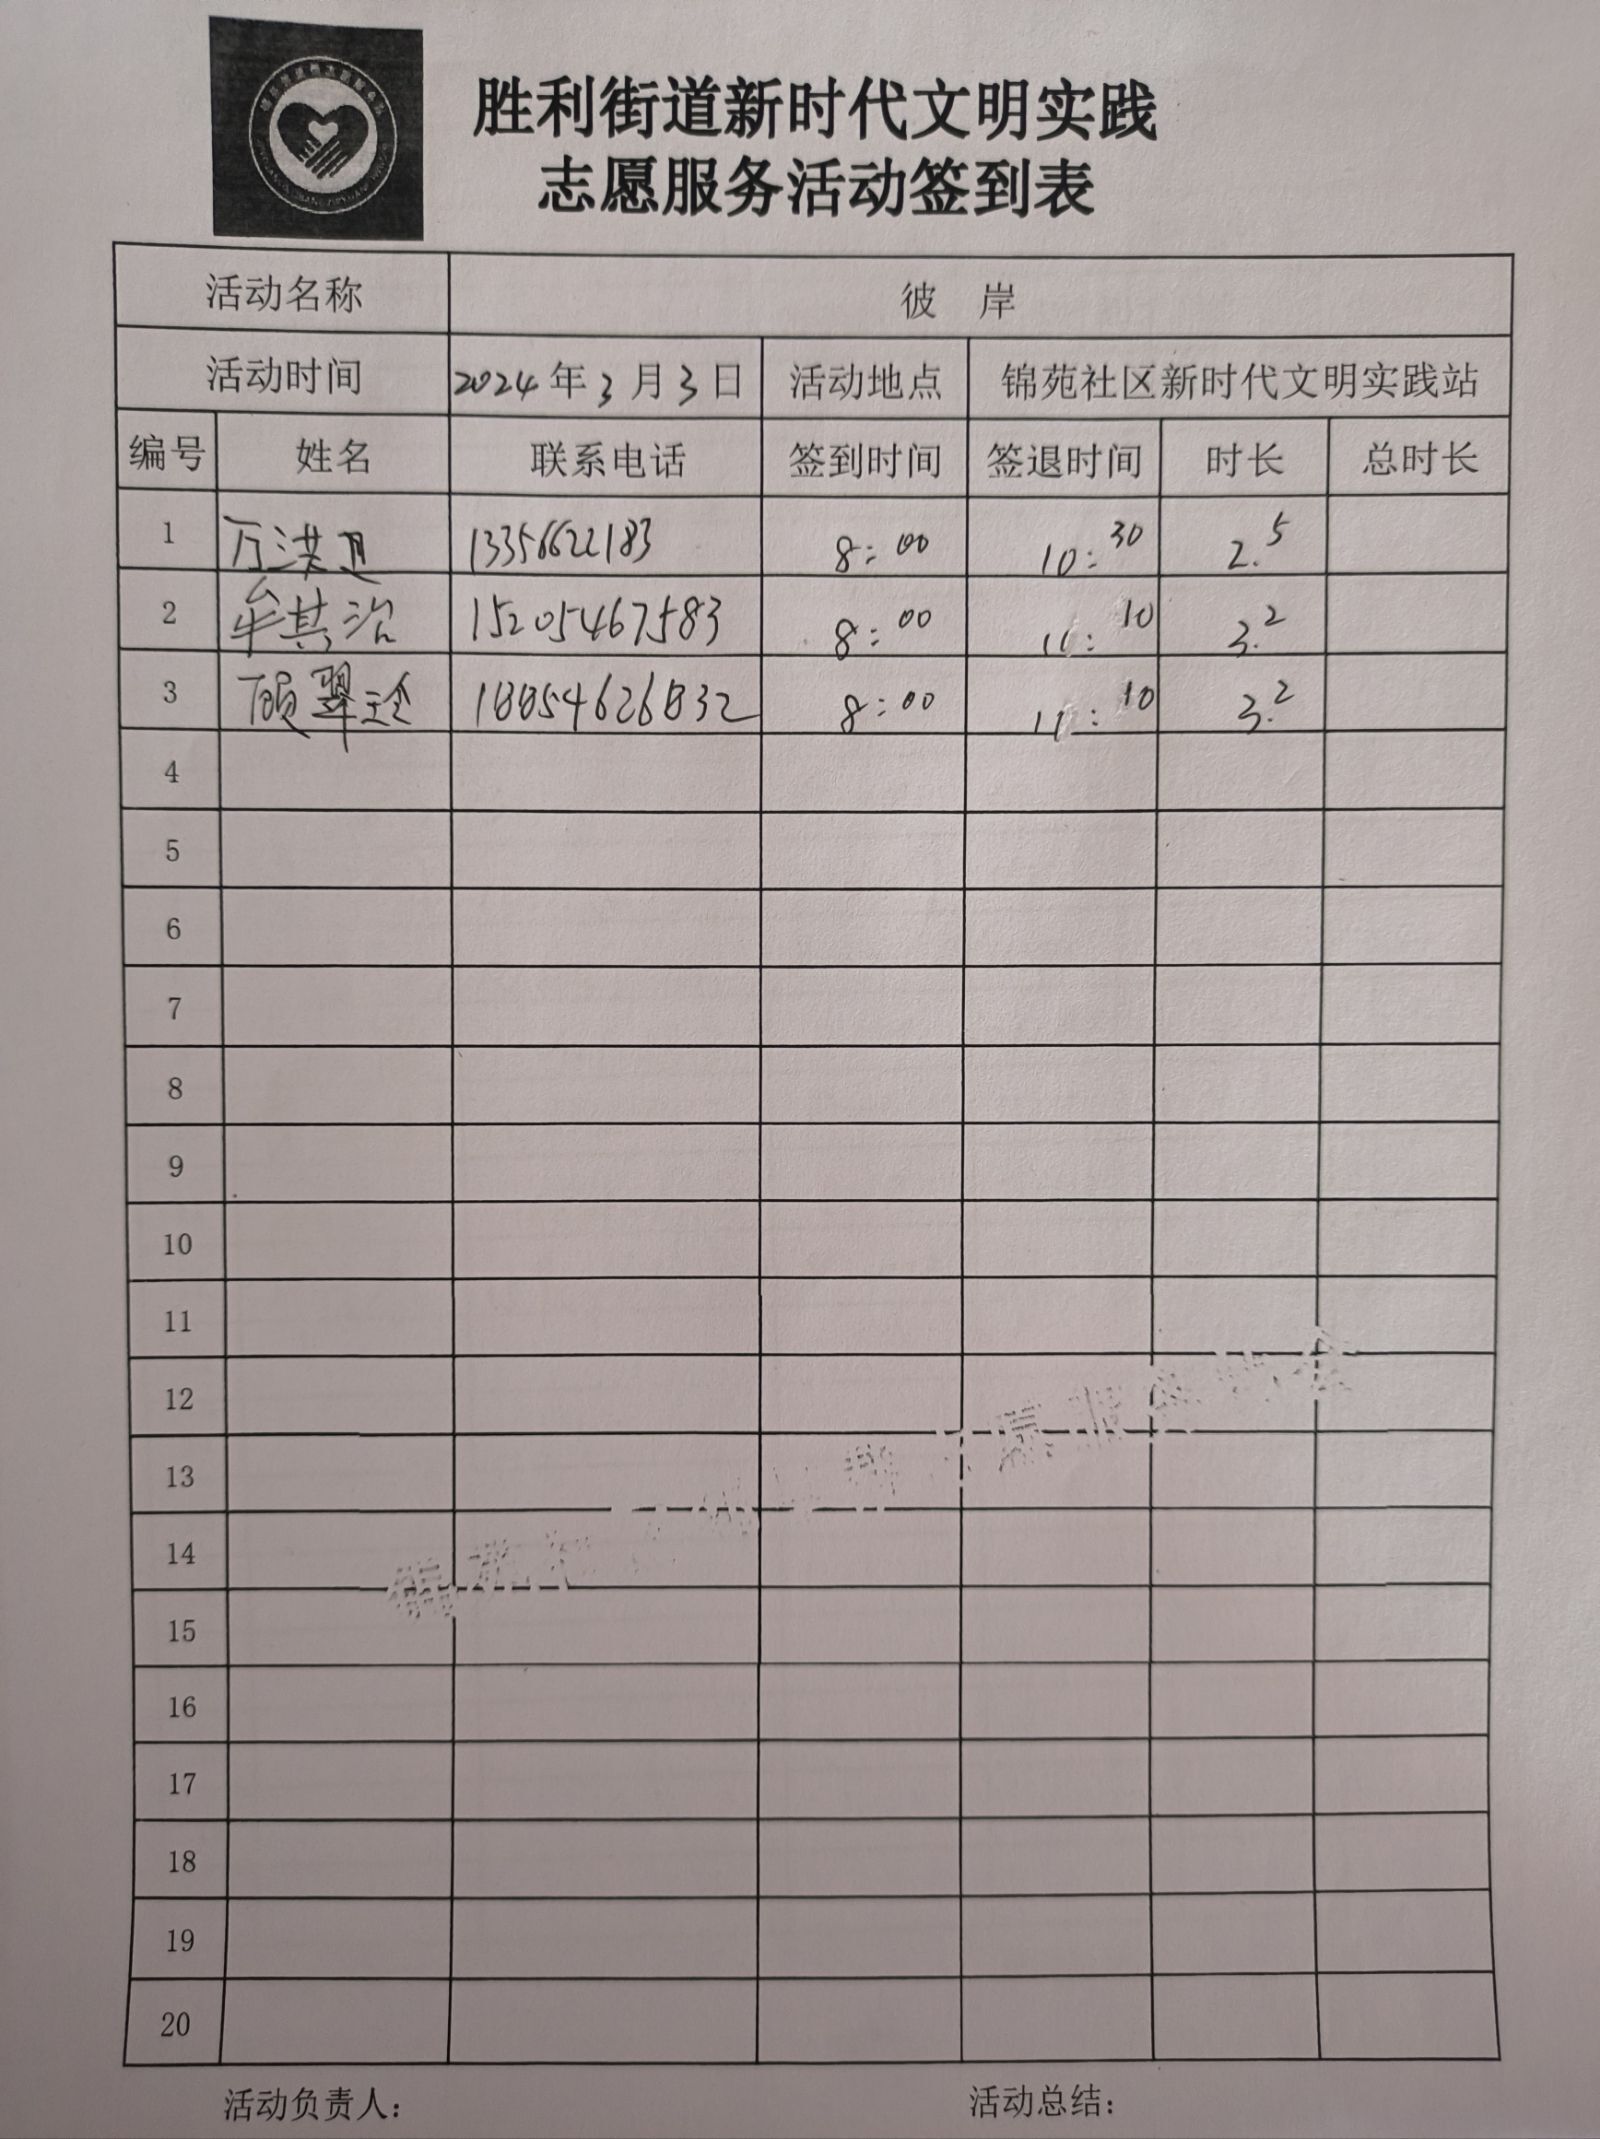 胜利街道新时代文明实践
志愿服务活动签到表
活动名称 彼 岸
活动时间 2024年3月3日 活动地点 锦苑社区新时代文明实践站
编号 姓名 联系电话 签到时间 签退时间 时长 总时长
1 13356622183 8:00 10:30 2.5
2 牟其治 15205467583 8:00 11:10 3.2
3 顾翠玲 18854626832 8:00 11:10 3.2
4
5
6
7
8
9
10
11
12
13
14
15
16
17
18
19
20
活动负责人: 活动总结: